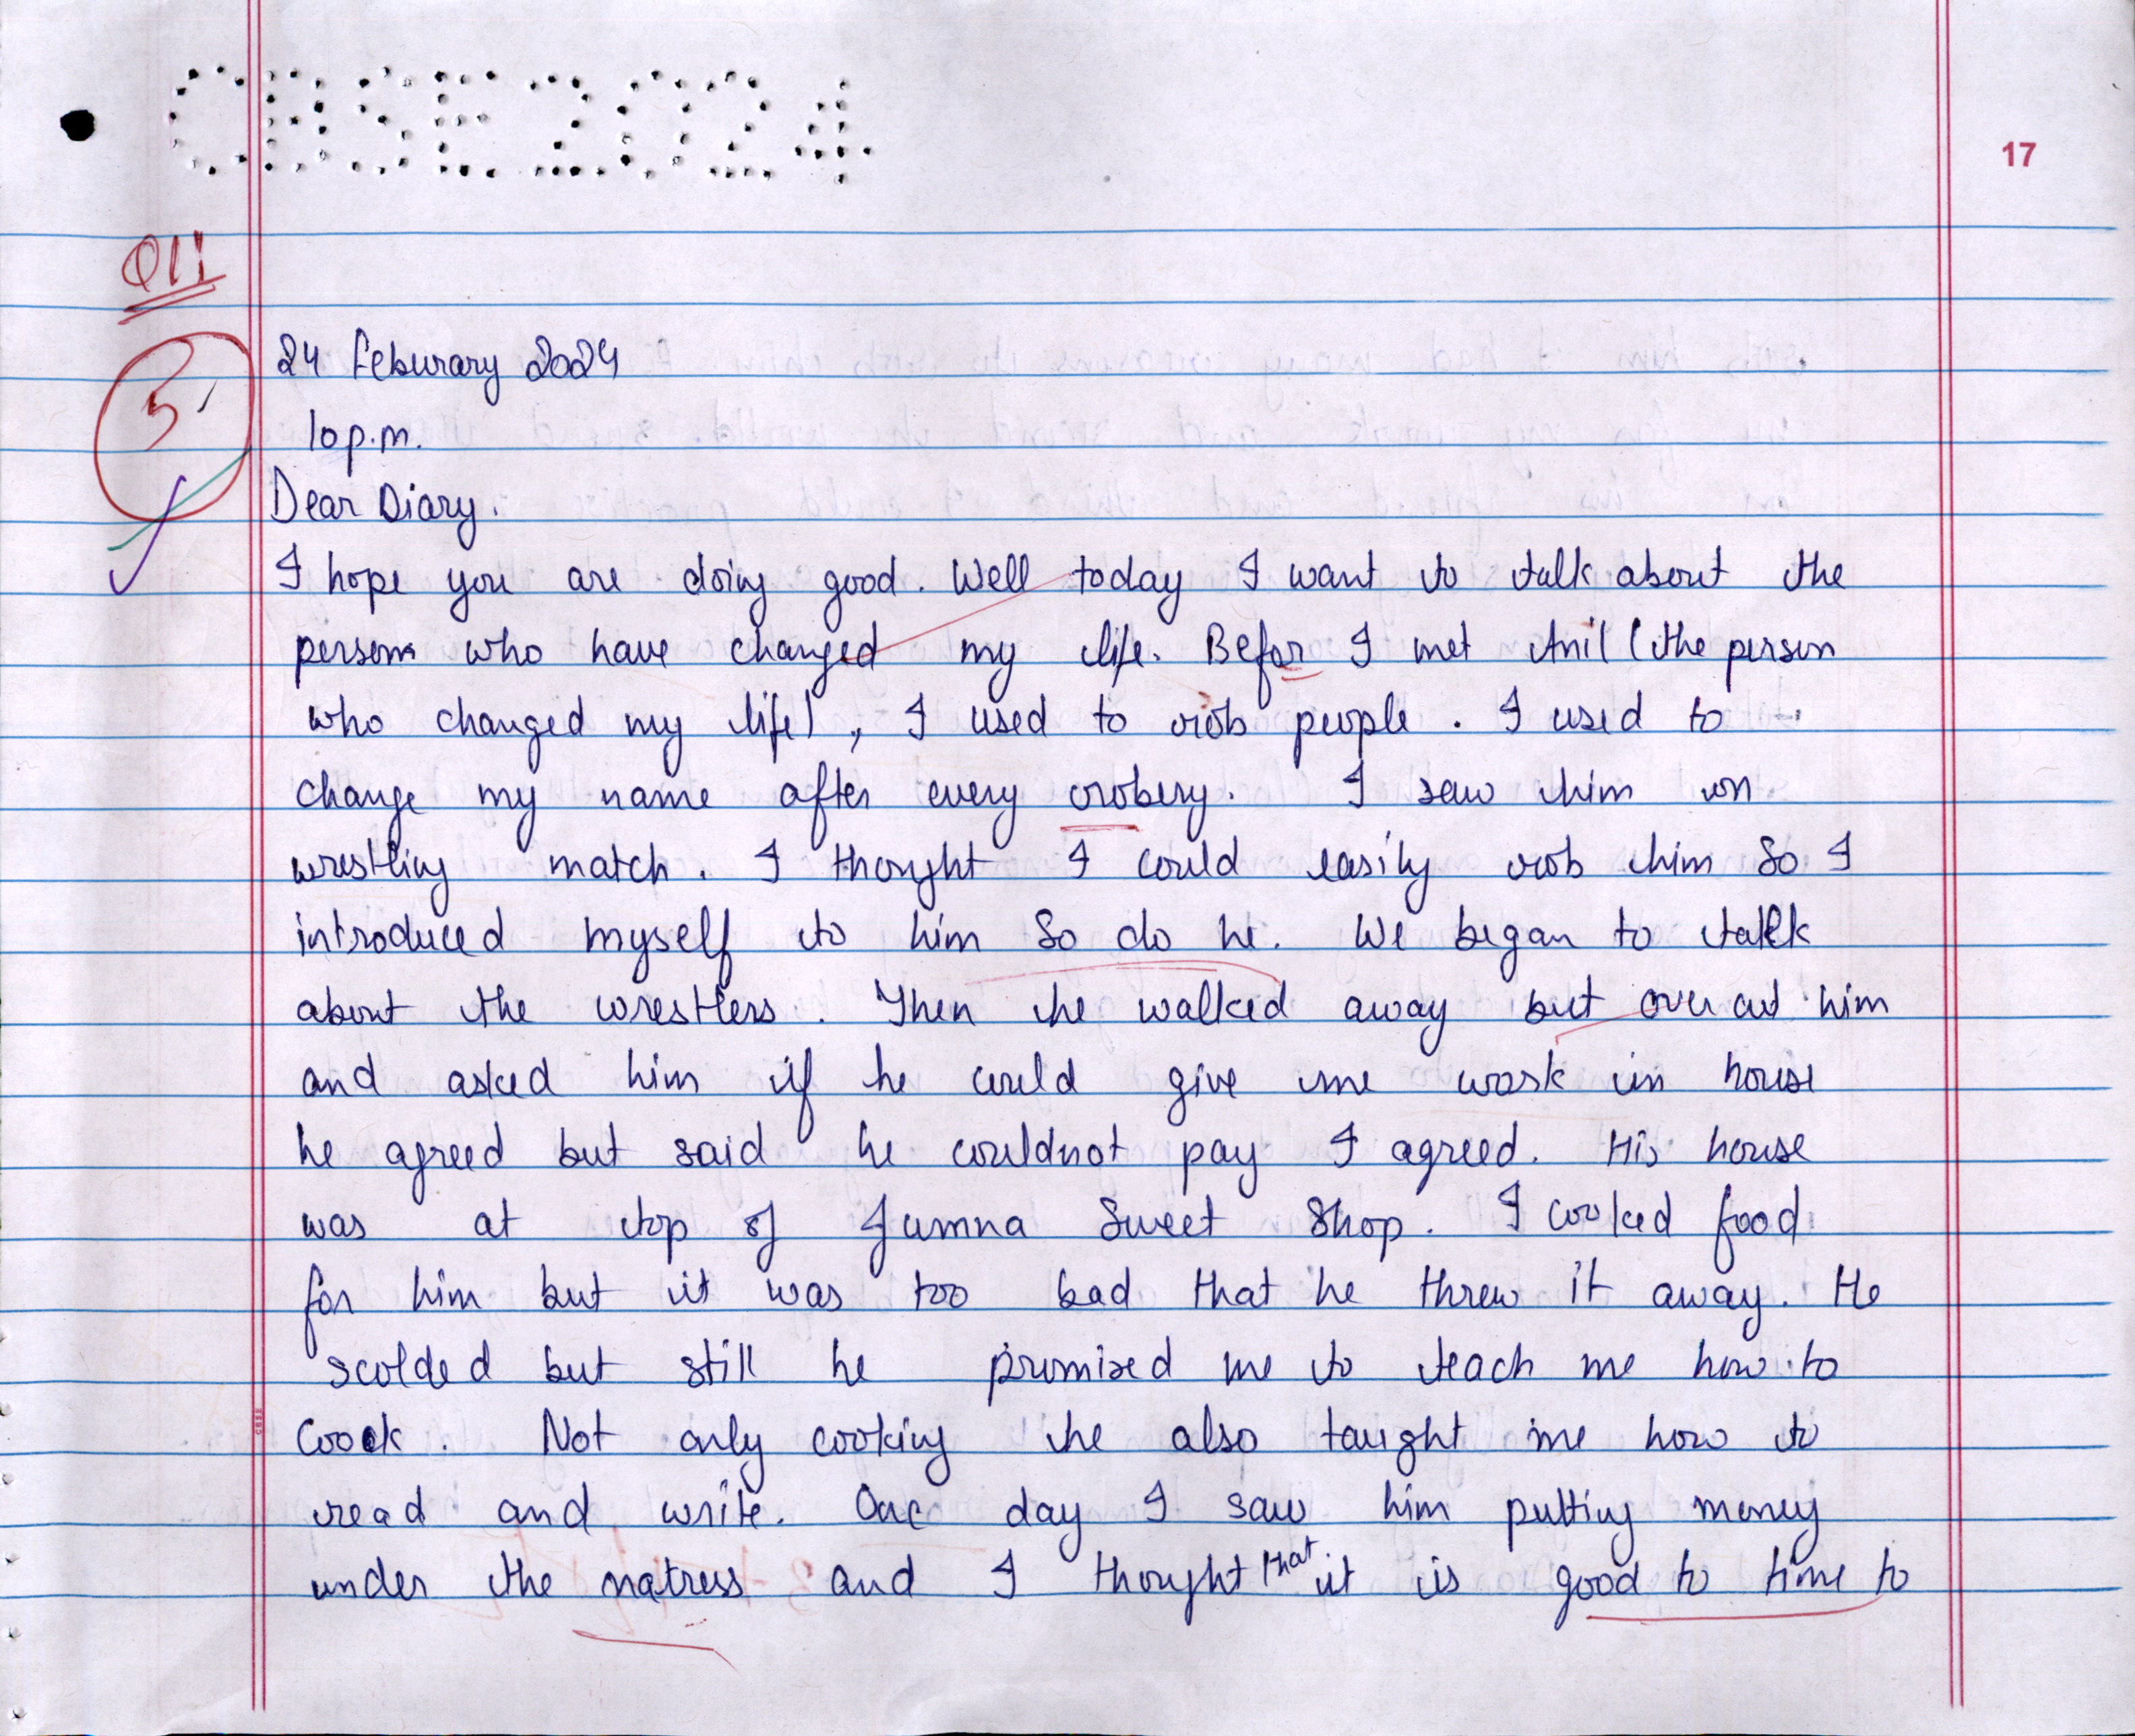 CBSE2024
17
Q11
5
24 Feburary 2024
10 p.m.
Dear Diary.
I hope you are doing good. Well today I want to talk about the
person who have changed my life. Befor I met Anil (the person
who changed my life), I used to rob people. I used to
change my name after every robery. I saw him on
wrestling match. I thought I could easily rob him So I
introduced myself to him So do he. We began to talk
about the wrestlers. Then he walked away but over at him
and asked him if he could give me work in house
he agreed but said he couldnot pay I agreed. His house
was at top of Jumna Sweet Shop. I cooked food
for him but it was too bad that he threw it away. He
scolded but still he promised me to teach me how to
Coock. Not only cooking he also taught me how to
read and write. One day I saw him putting money
under the matress and I thought that it is good to time to